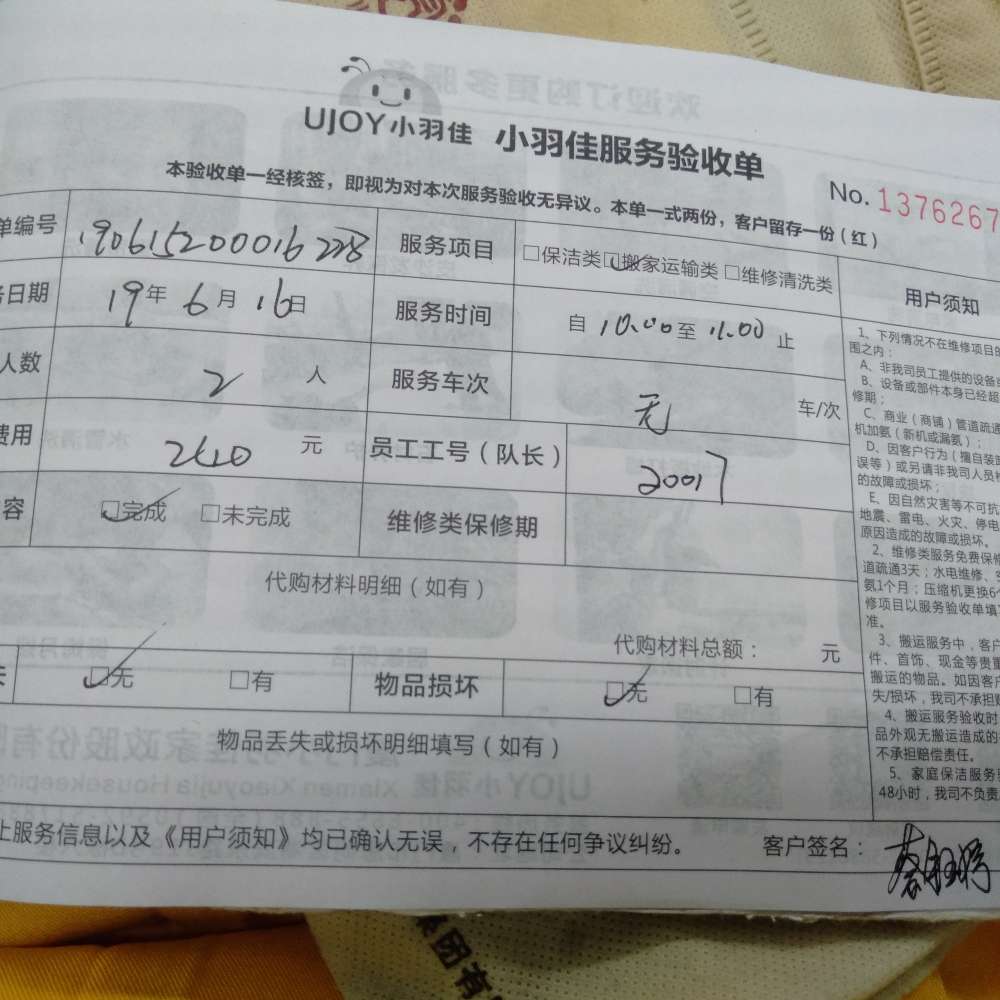 UJOY小羽佳 小羽佳服务验收单
No. 1376267
本验收单一经核签，即视为对本次服务验收无异议。本单一式两份，客户留存一份（红）
单编号 190615200016228 服务项目 □保洁类 □搬家运输类 □维修清洗类
日期 19年6月16日 服务时间 自10:00至11:00止
人数 2人 服务车次 无 车/次
费用 元 员工工号（队长） 20017
容 □完成 □未完成 维修类保修期
代购材料明细（如有）
代购材料总额： 元
□无 □有 物品损坏 □无 □有
物品丢失或损坏明细填写（如有）
上服务信息以及《用户须知》均已确认无误，不存在任何争议纠纷。 客户签名：
用户须知
1、下列情况不在维修项目的
围之内：
A、非我司员工提供的设备
B、设备或部件本身已经超
修期；
C、商业（商铺）管道疏通
机加氨（新机或漏氨）；
D、因客户行为（擅自装
误等）或另请非我司人员
的故障或损坏；
E、因自然灾害等不可抗
地震、雷电、火灾、停电
原因造成的故障或损坏。
2、维修类服务免费保修
道疏通3天；水电维修、
氨1个月；压缩机更换6个
修项目以服务验收单填
准。
3、搬运服务中，客户
件、首饰、现金等贵重
搬运的物品。如因客户
失/损坏，我司不承担
4、搬运服务验收时
品外观无搬运造成的
不承担赔偿责任。
5、家庭保洁服务
48小时，我司不负责